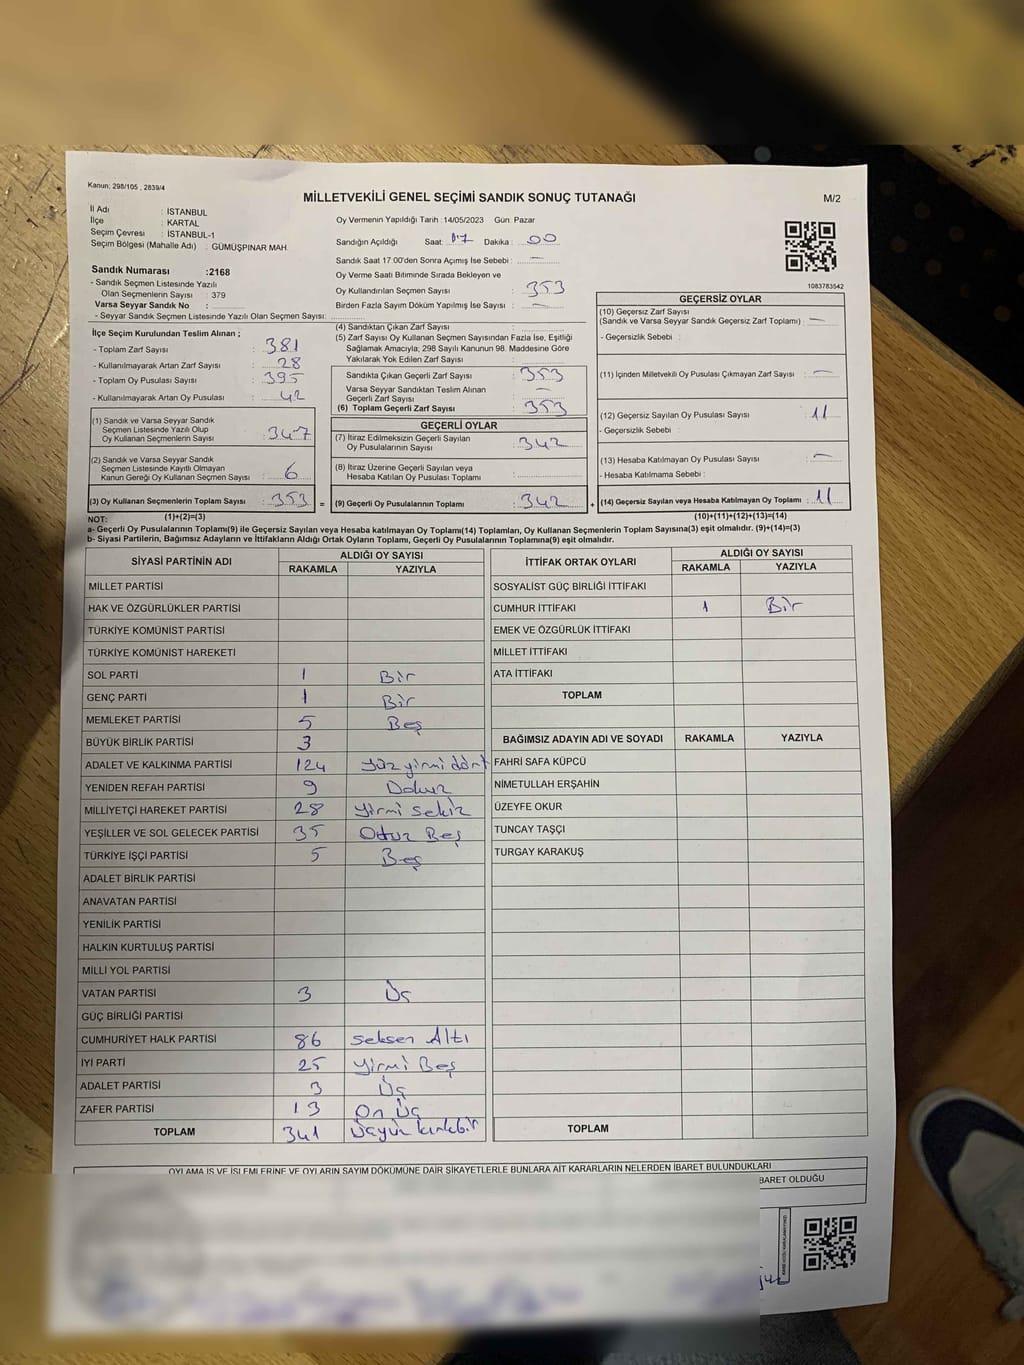 Kanun; 298/105 , 2839/4
MİLLETVEKİLİ GENEL SEÇİMİ SANDIK SONUÇ TUTANAĞI
M/2
İl Adı : İSTANBUL
İlçe : KARTAL
Seçim Çevresi : İSTANBUL-1
Seçim Bölgesi (Mahalle Adı) : GÜMÜŞPINAR MAH.
Sandık Numarası :2168
- Sandık Seçmen Listesinde Yazılı
Olan Seçmenlerin Sayısı : 379
Varsa Seyyar Sandık No :
- Seyyar Sandık Seçmen Listesinde Yazılı Olan Seçmen Sayısı:
Oy Vermenin Yapıldığı Tarih :14/05/2023 Gün: Pazar
Sandığın Açıldığı Saat: 17 Dakika : 00
Sandık Saat 17:00'den Sonra Açımış İse Sebebi : —
Oy Verme Saati Bitiminde Sırada Bekleyen ve
Oy Kullandırılan Seçmen Sayısı : 353
Birden Fazla Sayım Döküm Yapılmış İse Sayısı : —
1083783542
İlçe Seçim Kurulundan Teslim Alınan ;
- Toplam Zarf Sayısı : 381
- Kullanılmayarak Artan Zarf Sayısı : 28
- Toplam Oy Pusulası Sayısı : 395
- Kullanılmayarak Artan Oy Pusulası : 42
(1) Sandık ve Varsa Seyyar Sandık
Seçmen Listesinde Yazılı Olup
Oy Kullanan Seçmenlerin Sayısı : 347
(2) Sandık ve Varsa Seyyar Sandık
Seçmen Listesinde Kayıtlı Olmayan
Kanun Gereği Oy Kullanan Seçmen Sayısı : 6
(3) Oy Kullanan Seçmenlerin Toplam Sayısı : 353 =
(1)+(2)=(3)
(4) Sandıktan Çıkan Zarf Sayısı :
(5) Zarf Sayısı Oy Kullanan Seçmen Sayısından Fazla İse, Eşitliği
Sağlamak Amacıyla; 298 Sayılı Kanunun 98. Maddesine Göre
Yakılarak Yok Edilen Zarf Sayısı :
Sandıkta Çıkan Geçerli Zarf Sayısı : 353
Varsa Seyyar Sandıktan Teslim Alınan
Geçerli Zarf Sayısı : —
(6) Toplam Geçerli Zarf Sayısı : 353
GEÇERLİ OYLAR
(7) İtiraz Edilmeksizin Geçerli Sayılan
Oy Pusulalarının Sayısı : 342
(8) İtiraz Üzerine Geçerli Sayılan veya
Hesaba Katılan Oy Pusulası Toplamı :
(9) Geçerli Oy Pusulalarının Toplamı : 342 +
GEÇERSİZ OYLAR
(10) Geçersiz Zarf Sayısı
(Sandık ve Varsa Seyyar Sandık Geçersiz Zarf Toplamı) : —
- Geçersizlik Sebebi :
(11) İçinden Milletvekili Oy Pusulası Çıkmayan Zarf Sayısı : —
(12) Geçersiz Sayılan Oy Pusulası Sayısı : 11
- Geçersizlik Sebebi :
(13) Hesaba Katılmayan Oy Pusulası Sayısı : —
- Hesaba Katılmama Sebebi :
(14) Geçersiz Sayılan veya Hesaba Katılmayan Oy Toplamı : 11
(10)+(11)+(12)+(13)=(14)
NOT:
a- Geçerli Oy Pusulalarının Toplamı(9) ile Geçersiz Sayılan veya Hesaba katılmayan Oy Toplamı(14) Toplamları, Oy Kullanan Seçmenlerin Toplam Sayısına(3) eşit olmalıdır. (9)+(14)=(3)
b- Siyasi Partilerin, Bağımsız Adayların ve İttifakların Aldığı Ortak Oyların Toplamı, Geçerli Oy Pusulalarının Toplamına(9) eşit olmalıdır.
SİYASİ PARTİNİN ADI ALDIĞI OY SAYISI
RAKAMLA YAZIYLA
MİLLET PARTİSİ
HAK VE ÖZGÜRLÜKLER PARTİSİ
TÜRKİYE KOMÜNİST PARTİSİ
TÜRKİYE KOMÜNİST HAREKETİ
SOL PARTİ 1 Bir
GENÇ PARTİ 1 Bir
MEMLEKET PARTİSİ 5 Beş
BÜYÜK BİRLİK PARTİSİ 3
ADALET VE KALKINMA PARTİSİ 124 yüz yirmi dört
YENİDEN REFAH PARTİSİ 9 Dokuz
MİLLİYETÇİ HAREKET PARTİSİ 28 yirmi sekiz
YEŞİLLER VE SOL GELECEK PARTİSİ 35 Otuz Beş
TÜRKİYE İŞÇİ PARTİSİ 5 Beş
ADALET BİRLİK PARTİSİ
ANAVATAN PARTİSİ
YENİLİK PARTİSİ
HALKIN KURTULUŞ PARTİSİ
MİLLİ YOL PARTİSİ
VATAN PARTİSİ 3 Üç
GÜÇ BİRLİĞİ PARTİSİ
CUMHURİYET HALK PARTİSİ 86 seksen Altı
İYİ PARTİ 25 yirmi Beş
ADALET PARTİSİ 3 Üç
ZAFER PARTİSİ 13 On Üç
TOPLAM 341
İTTİFAK ORTAK OYLARI ALDIĞI OY SAYISI
RAKAMLA YAZIYLA
SOSYALİST GÜÇ BİRLİĞİ İTTİFAKI
CUMHUR İTTİFAKI 1 Bir
EMEK VE ÖZGÜRLÜK İTTİFAKI
MİLLET İTTİFAKI
ATA İTTİFAKI
TOPLAM
BAĞIMSIZ ADAYIN ADI VE SOYADI RAKAMLA YAZIYLA
FAHRİ SAFA KÜPCÜ
NİMETULLAH ERŞAHİN
ÜZEYFE OKUR
TUNCAY TAŞÇI
TURGAY KARAKUŞ
TOPLAM
OYLAMA İŞ VE İŞLEMLERİNE VE OYLARIN SAYIM DÖKÜMÜNE DAİR ŞİKAYETLERLE BUNLARA AİT KARARLARIN NELERDEN İBARET BULUNDUKLARI
BARET OLDUĞU